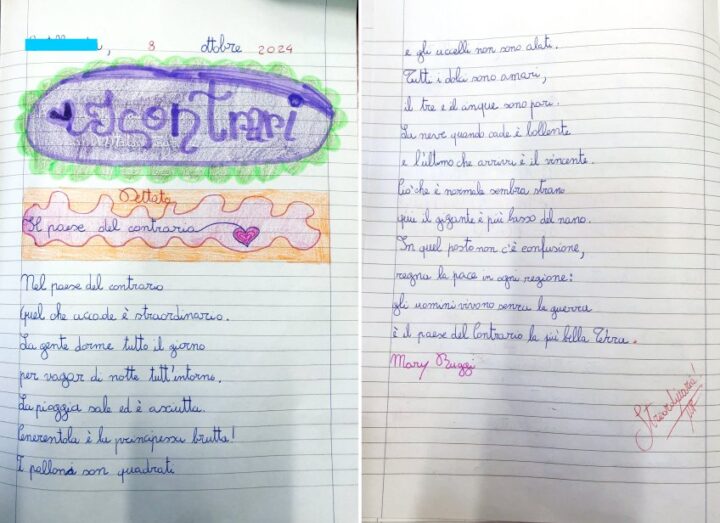 8 ottobre 2024
I Contrari
Dettato
Il paese del contrario
Nel paese del contrario
Quel che accade è straordinario.
La gente dorme tutto il giorno
per vagar di notte tutt'intorno.
La pioggia sale ed è asciutta.
Cenerentola è la principessa brutta!
I palloni son quadrati
e gli uccelli non sono alati.
Tutti i dolci sono amari,
il tre e il cinque sono pari.
La neve quando cade è bollente
e l'ultimo che arriva è il vincente.
Ciò che è normale sembra strano
qui il gigante è più basso del nano.
In quel posto non c'è confusione,
regna la pace in ogni regione:
gli uomini vivono senza la guerra
è il paese del Contrario la più bella Terra.
Mary Ruggi
Straordinario!